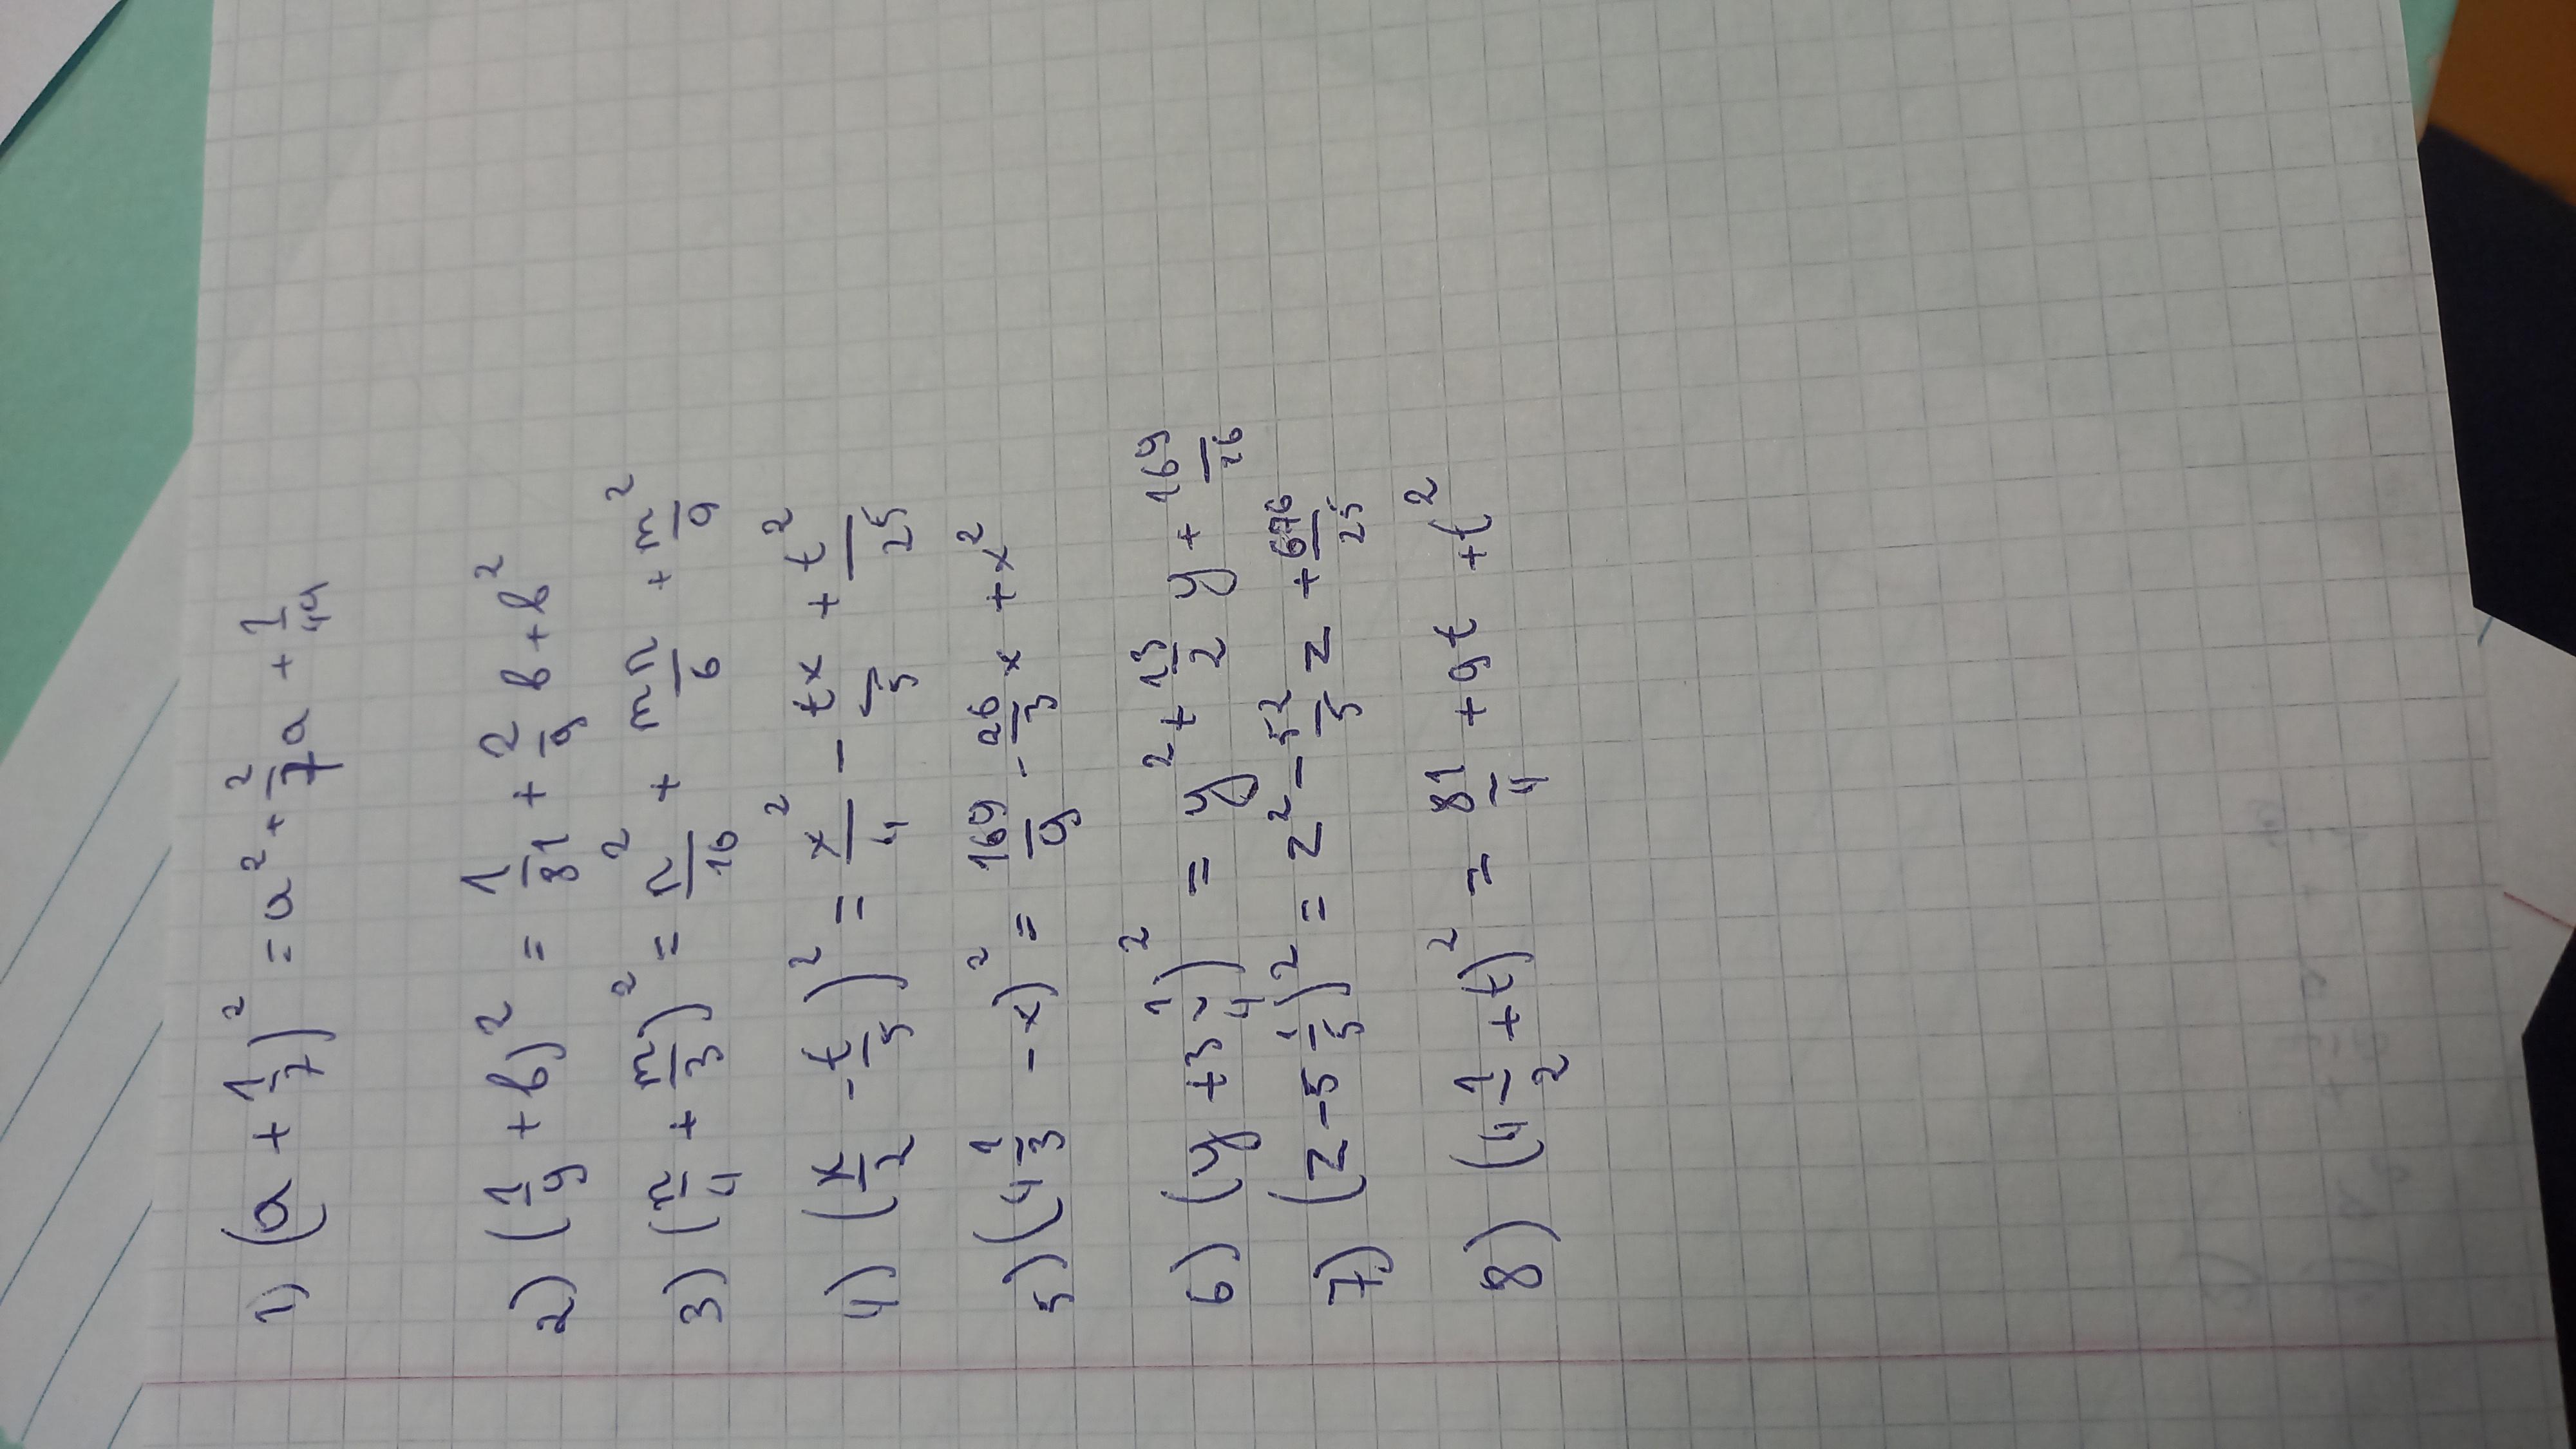 1) (a + 1/7)² = a² + 2/7 a + 1/49
2) (1/9 + b)² = 1/81 + 2/9 b + b²
3) (n/4 + m/3)² = n²/16 + mn/6 + m²/9
4) (x/2 - t/5)² = x²/4 - tx/5 + t²/25
5) (4 1/3 - x)² = 169/9 - 26/3 x + x²
6) (y + 3 1/4)² = y² + 13/2 y + 169/16
7) (z - 5 1/5)² = z² - 52/5 z + 676/25
8) (4 1/2 + t)² = 81/4 + 9t + t²